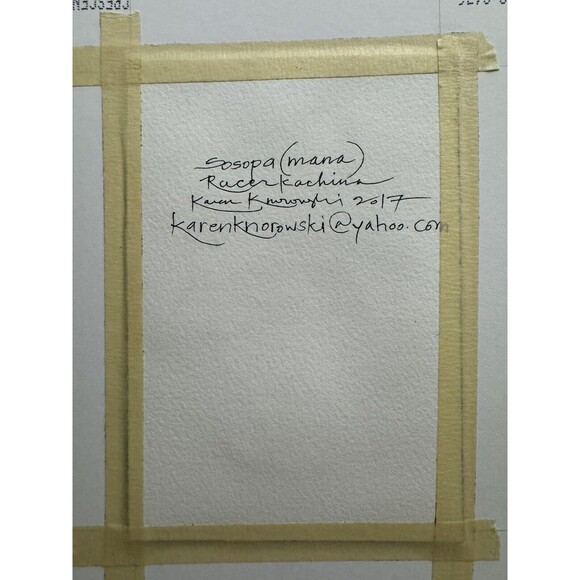 Sosopa (mana)
Racer Kachina
Karen Knorowski 2017
karenknorowski@yahoo.com